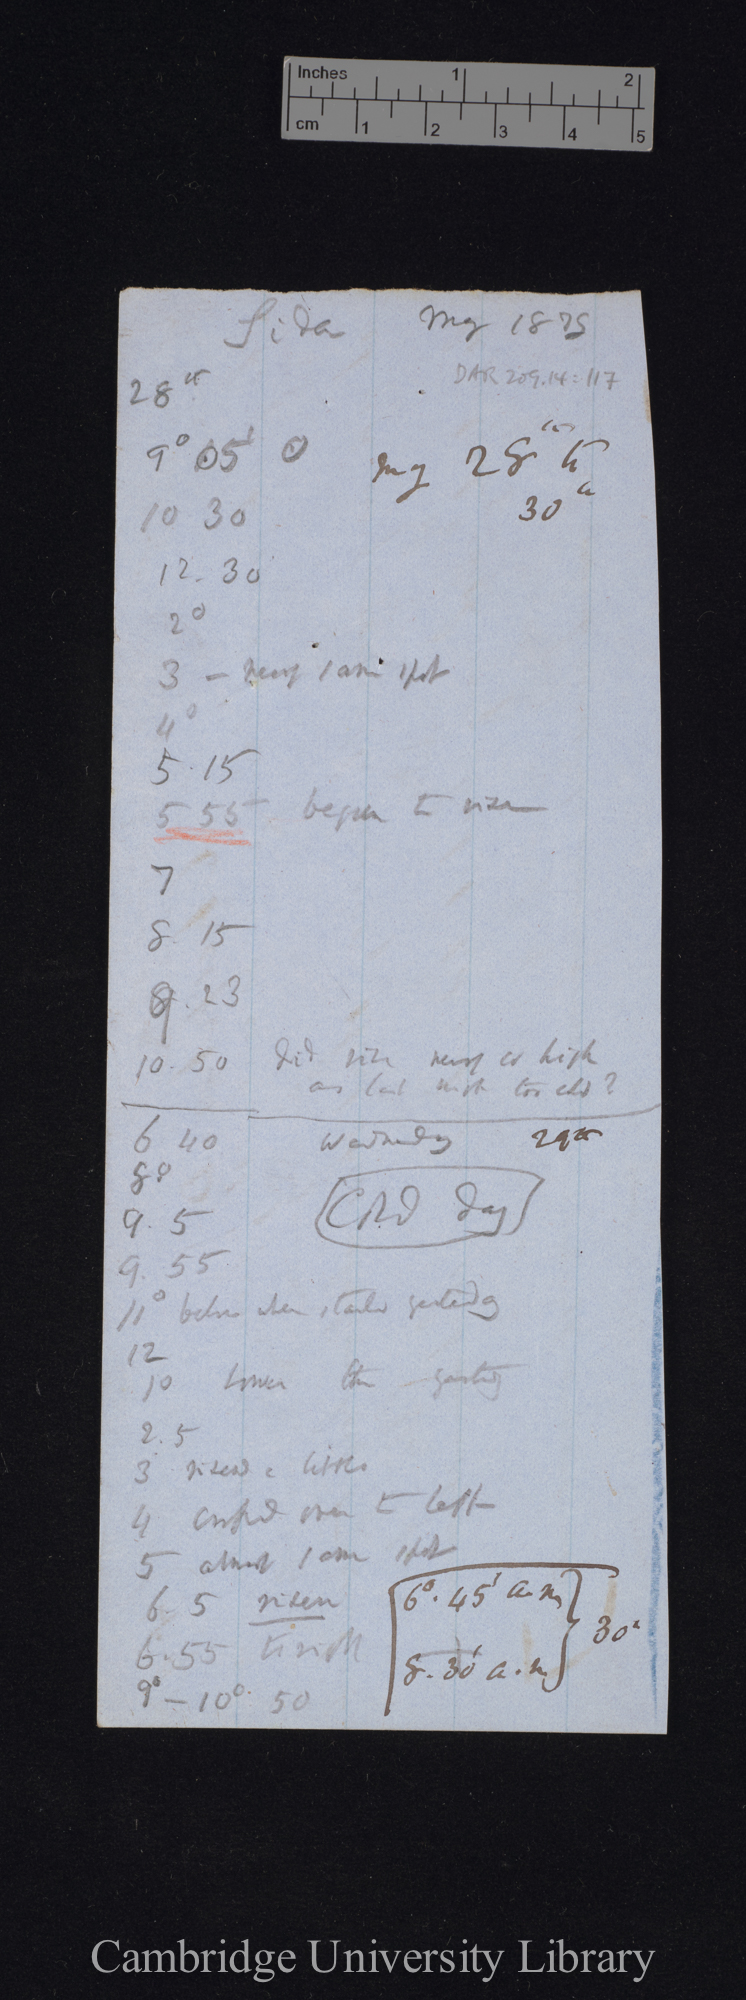 Inches 1 2
cm 1 2 3 4 5
Sida May 1875
DAR 209.14:117
28th
9° 05' 0
May 28th to
30th
10 30
12. 30
2°
3 – nearly same spot
4°
5.15
5 55 began to rise
7
8. 15
9. 23
10. 50 did rise nearly as high
as last night
6 40 Wednesday 29th
8°
9. 5
Cold day
9. 55
11° below when started yesterday
12
10 lower than yesterday
2. 5
3 risen a little
4 crossed over to left
5 almost same spot
6. 5 risen
6.55 to right
9° – 10°. 50
6°. 45' a.m
8. 30' a.m
30th
Cambridge University Library